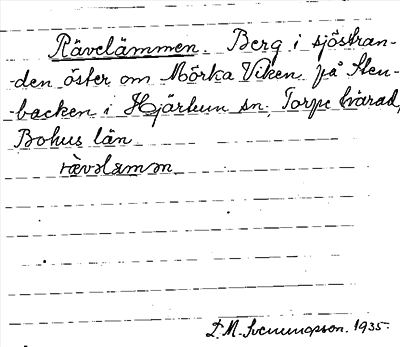 Rävelämmen. Berg i sjöstran-
-den öster om Mörka Viken på Sten-
-backen i Hjärtum sn, Torpe härad,
Bohus län
rævəlæmən
D. M. Svenungsson. 1935.